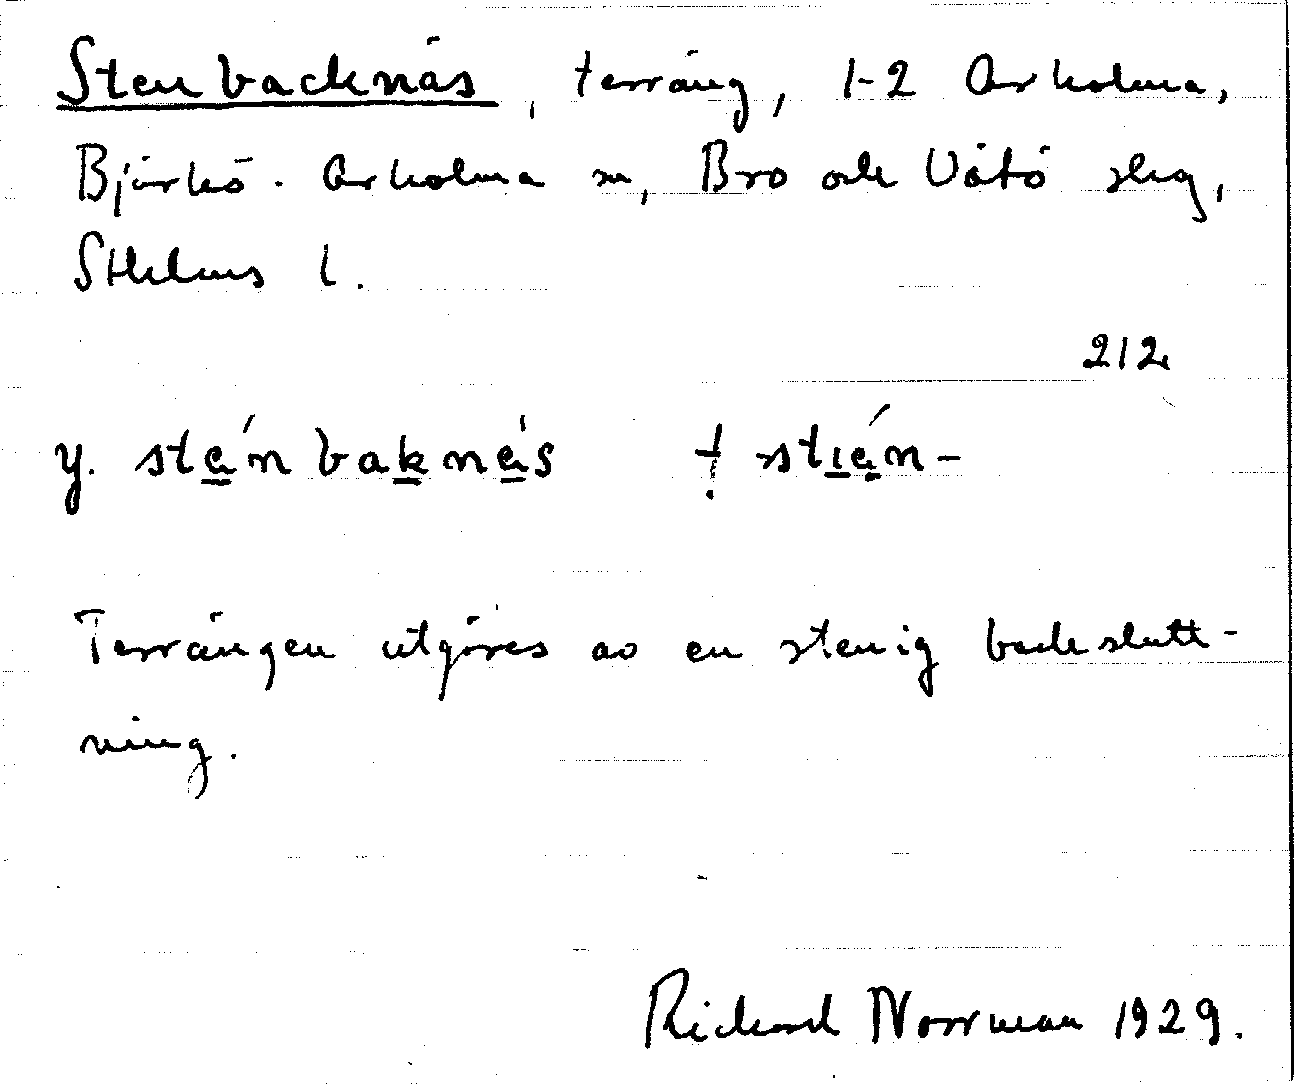 Stenbacknäs, terräng, 1-2 Arholma,
Björkö-Arholma sn, Bro och Vätö skg,
Sthlms l.
212
y. stę́nbaknä̀s † stıę́n-
Terrängen utgöres av en stenig backslutt-
ning.
Rickard Norrman 1929.